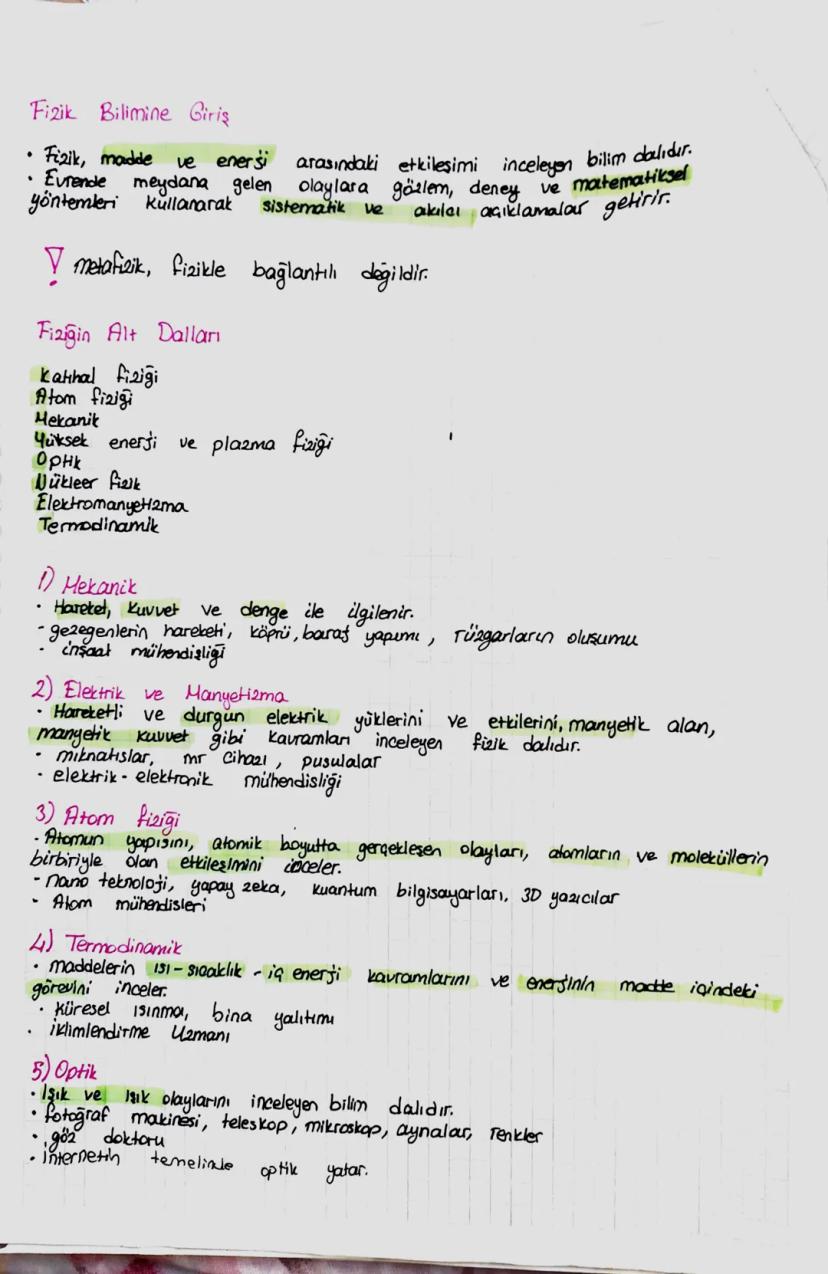 Fizik Bilimine Giriş
• Fizik, madde ve enerji arasındaki etkileşimi inceleyen bilim dalıdır.
• Evrende meydana gelen olaylara gözlem, deney ve matematiksel
yöntemleri kullanarak sistematik ve akılcı açıklamalar getirir.
! metafizik, fizikle bağlantılı değildir.
Fiziğin Alt Dalları
Katıhal fiziği
Atom fiziği
Mekanik
Yüksek enerji ve plazma fiziği
Optik
Nükleer fizik
Elektromanyetizma
Termodinamik
1) Mekanik
• Hareket, kuvvet ve denge ile ilgilenir.
- gezegenlerin hareketi, köprü, baraj yapımı, rüzgarların oluşumu
- inşaat mühendisliği
2) Elektrik ve Manyetizma
• Hareketli ve durgun elektrik yüklerini ve etkilerini, manyetik alan,
manyetik kuvvet gibi kavramları inceleyen fizik dalıdır.
• mıknatıslar, mr cihazı, pusulalar
• elektrik - elektronik mühendisliği
3) Atom fiziği
• Atomun yapısını, atomik boyutta gerçekleşen olayları, atomların ve moleküllerin
birbiriyle olan etkileşimini inceler.
- nano teknoloji, yapay zeka, kuantum bilgisayarları, 3D yazıcılar
- Atom mühendisleri
4) Termodinamik
• maddelerin ısı - sıcaklık - iç enerji kavramlarını ve enerjinin madde içindeki
görevini inceler.
• Küresel ısınma, bina yalıtımı
• iklimlendirme Uzmanı
5) Optik
• Işık ve ışık olaylarını inceleyen bilim dalıdır.
• fotoğraf makinesi, teleskop, mikroskop, aynalar, renkler
• göz doktoru
• internetin temelinde optik yatar.